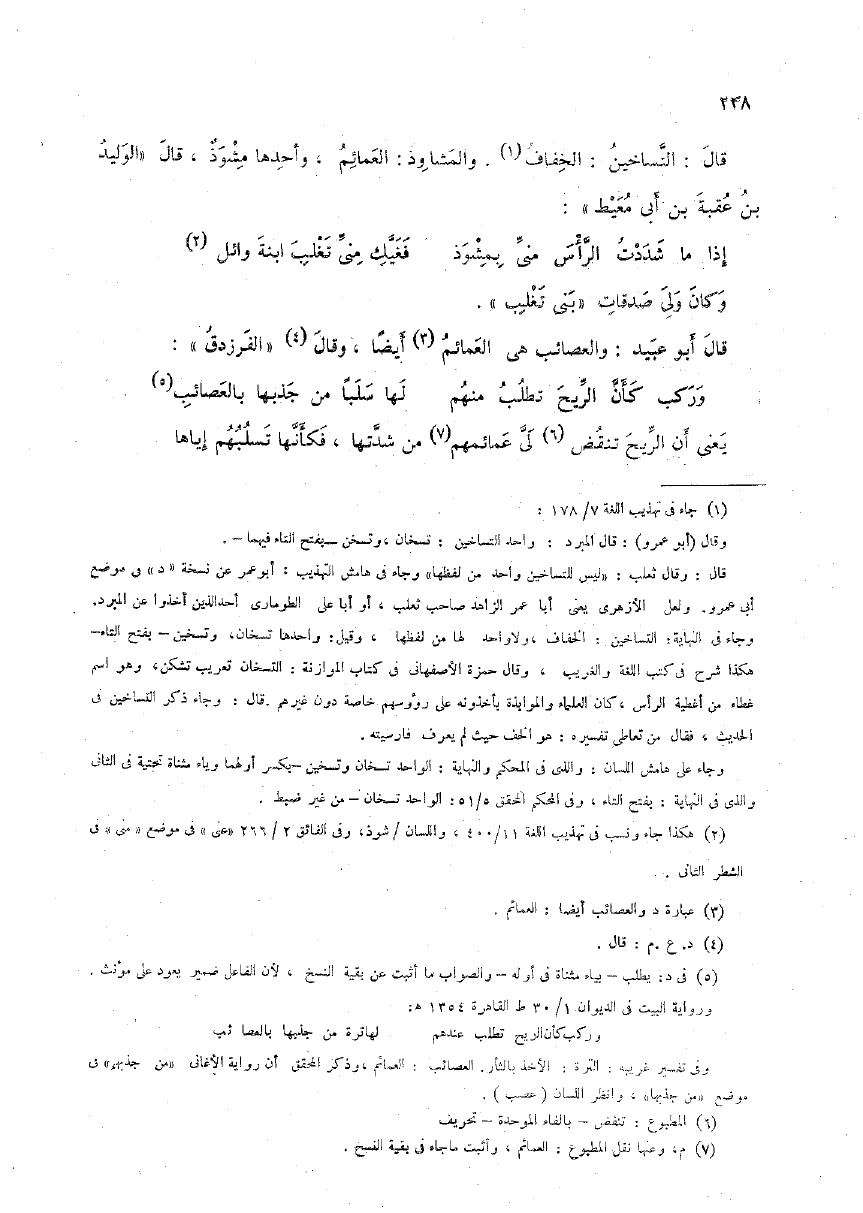 ٢٤٨
قالَ : التَّساخينُ : الخِفافُ (١) . والمَشاوِذ : العَمائِمُ ، وأحِدها مِشْوَذٌ ، قالَ «الوَليدُ
بنُ عُقبةَ بن أَبى مُعَيْط» :
إذا ما شَدَدْتُ الرَّأْسَ منىِّ بِمِشْوَذ فَغَيَّكِ مِنىِّ تَغْلِبَ ابنةَ وائل (٢)
وَكانَ وَلِىَ صَدقاتِ «بَنى تَغْلِب» .
قالَ أَبو عبَيد : والعصائب هى العَمائمُ (٣) أَيضًا ، وقالَ (٤) «الفَرزدقُ» :
وَرَكب كَأَنَّ الرِّيحَ تطلُبُ منهُم لَها سَلَبًا من جَذبها بالعَصائبِ (٥)
يَعنى أَن الرِّيحَ تنقُض (٦) لَىَّ عَمائمهم (٧) من شدَّتها ، فَكأَنَّها تَسلُبُهُم إياها
(١) جاء فى تهذيب اللغة ٧/ ١٧٨ :
وقال (أبو عمرو) : قال المبرد : واحد التساخين : تسخان ، وتسخن – بفتح التاء فيهما – .
قال : وقال ثعلب : «ليس للتساخين واحد من لفظها» وجاء فى هامش التهذيب : أبو عمر عن نسخة «د» فى موضع
أبى عمرو. ولعل الأزهرى يعنى أبا عمر الزاهد صاحب ثعلب ، أو أبا على الطومارى أحد الذين أخذوا عن المبرد.
وجاء فى النهاية : التساخين : الخفاف ، ولا واحد لها من لفظها ، وقيل : واحدها تسخان، وتسخين – بفتح التاء–
هكذا شرح فى كتب اللغة والغريب ، وقال حمزة الأصفهانى فى كتاب الموازنة : التسخان تعريب تشكن، وهو اسم
غطاء من أغطية الرأس ، كان العلماء والموابذة يأخذونه على رؤوسهم خاصة دون غيرهم . قال : وجاء ذكر التساخين فى
الحديث ، فقال من تعاطى تفسيره : هو الخف حيث لم يعرف فارسيته .
وجاء على هامش اللسان : والذى فى المحكم والنهاية : الواحد تسخان وتسخين – بكسر أولهما وياء مثناة تحتية فى الثانى
والذى فى النهاية : بفتح التاء ، وفى المحكم المحقق ٥/ ٥١ : الواحد تسخان – من غير ضبط .
(٢) هكذا جاء ونسب فى تهذيب اللغة ١١/ ٤٠٠ ، واللسان / شوذ، وفى الفائق ٢ / ٢٦٦ «عنى» فى موضع «منى» فى
الشطر الثانى .
(٣) عبارة د والعصائب أيضا : العمائم .
(٤) د. ع .م : قال .
(٥) فى د : يطلب – بياء مثناة فى أوله – والصواب ما أثبت عن بقية النسخ ، لأن الفاعل ضمير يعود على مؤنث .
ورواية البيت فى الديوان ١/ ٣٠ ط القاهرة ١٣٥٤ هـ:
وركب كأن الريح تطلب عندهم لها ترة من جذبها بالعصا ئب
وفى تفسير غريبه : الترة : الأخذ بالثأر. العصائب : العمائم ، وذكر المحقق أن رواية الأغانى «من جذبهم» فى
موضع «من جذبها» ، وانظر اللسان ( عصب ) .
(٦) المطبوع : تنفض – بالفاء الموحدة – تحريف
(٧) م، وعنها نقل المطبوع : العمائم ، وأثبت ماجاء فى بقية النسخ .